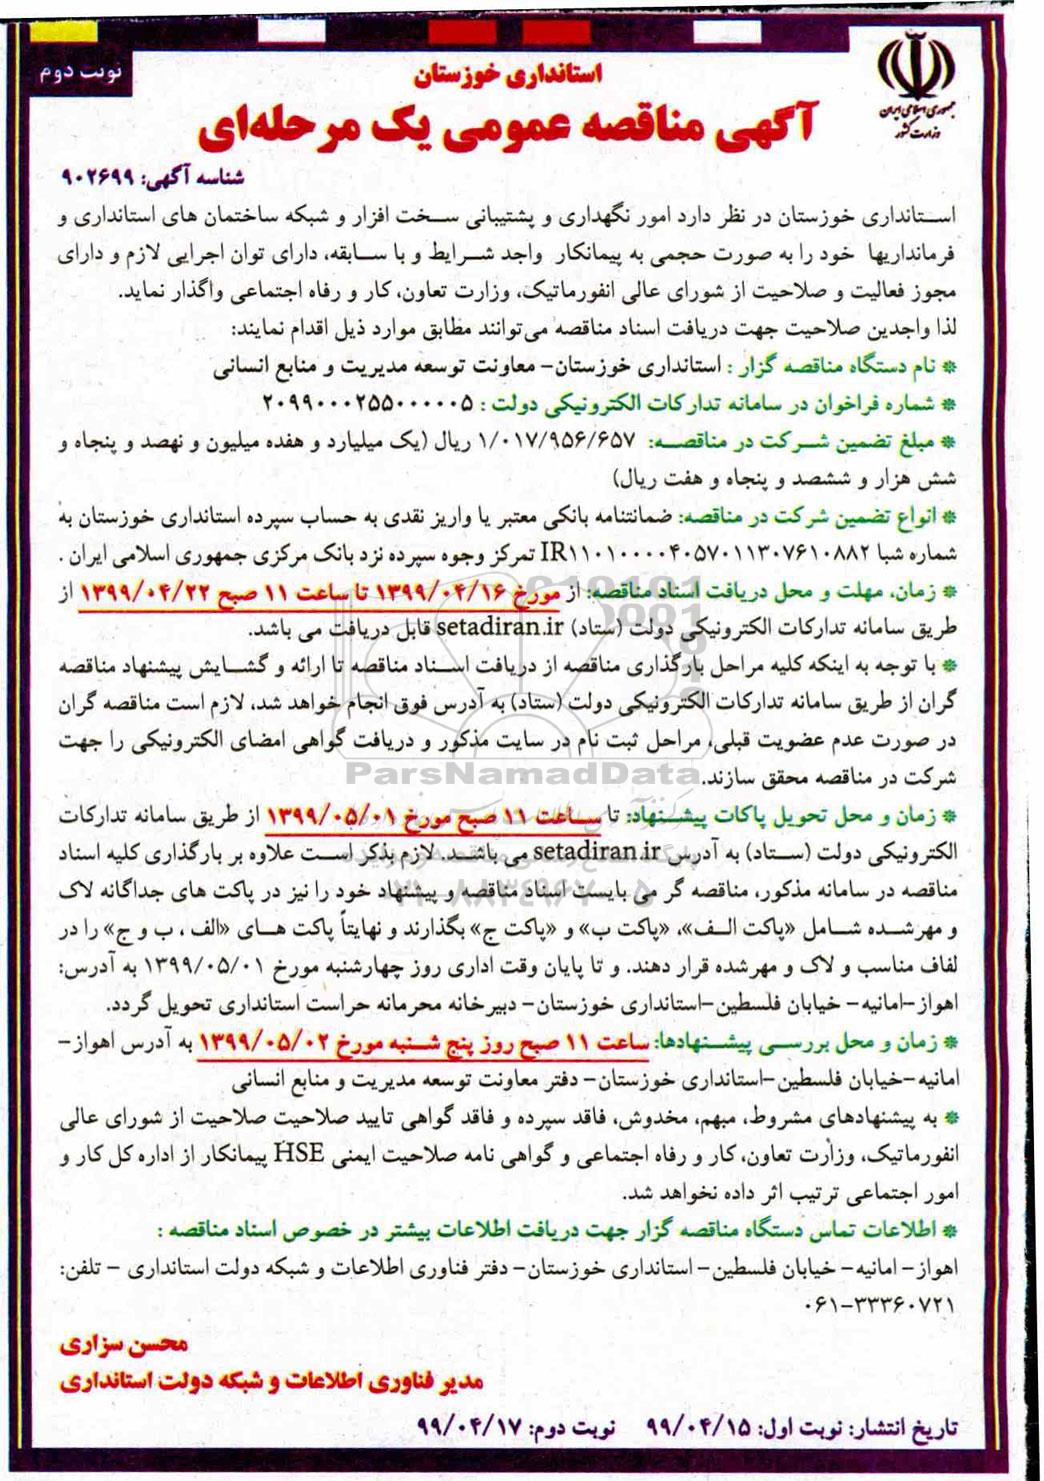 نوبت دوم
جمهوری اسلامی ایران
وزارت کشور
استانداری خوزستان
آگهی مناقصه عمومی یک مرحله‌ای
شناسه آگهی: ۹۰۲۶۹۹
استانداری خوزستان در نظر دارد امور نگهداری و پشتیبانی سخت افزار و شبکه ساختمان های استانداری و
فرمانداریها خود را به صورت حجمی به پیمانکار واجد شرایط و با سابقه، دارای توان اجرایی لازم و دارای
مجوز فعالیت و صلاحیت از شورای عالی انفورماتیک، وزارت تعاون، کار و رفاه اجتماعی واگذار نماید.
لذا واجدین صلاحیت جهت دریافت اسناد مناقصه می‌توانند مطابق موارد ذیل اقدام نمایند:
* نام دستگاه مناقصه گزار : استانداری خوزستان- معاونت توسعه مدیریت و منابع انسانی
* شماره فراخوان در سامانه تدارکات الکترونیکی دولت : ۲۰۹۹۰۰۰۲۵۵۰۰۰۰۰۵
* مبلغ تضمین شرکت در مناقصه: ۱/۰۱۷/۹۵۶/۶۵۷ ریال (یک میلیارد و هفده میلیون و نهصد و پنجاه و
شش هزار و ششصد و پنجاه و هفت ریال)
* انواع تضمین شرکت در مناقصه: ضمانتنامه بانکی معتبر یا واریز نقدی به حساب سپرده استانداری خوزستان به
شماره شبا IR۱۱۰۱۰۰۰۰۴۰۵۷۰۱۱۳۰۷۶۱۰۸۸۲ تمرکز وجوه سپرده نزد بانک مرکزی جمهوری اسلامی ایران .
* زمان، مهلت و محل دریافت اسناد مناقصه: از مورخ ۱۳۹۹/۰۴/۱۶ تا ساعت ۱۱ صبح ۱۳۹۹/۰۴/۲۲ از
طریق سامانه تدارکات الکترونیکی دولت (ستاد) setadiran.ir قابل دریافت می باشد.
* با توجه به اینکه کلیه مراحل بارگذاری مناقصه از دریافت اسناد مناقصه تا ارائه و گشایش پیشنهاد مناقصه
گران از طریق سامانه تدارکات الکترونیکی دولت (ستاد) به آدرس فوق انجام خواهد شد، لازم است مناقصه گران
در صورت عدم عضویت قبلی، مراحل ثبت نام در سایت مذکور و دریافت گواهی امضای الکترونیکی را جهت
شرکت در مناقصه محقق سازند.
ParsNamadData
* زمان و محل تحویل پاکات پیشنهاد: تا ساعت ۱۱ صبح مورخ ۱۳۹۹/۰۵/۰۱ از طریق سامانه تدارکات
الکترونیکی دولت (ستاد) به آدرس setadiran.ir می باشد. لازم بذکر است علاوه بر بارگذاری کلیه اسناد
مناقصه در سامانه مذکور، مناقصه گر می بایست اسناد مناقصه و پیشنهاد خود را نیز در پاکت های جداگانه لاک
و مهرشده شامل «پاکت الف»، «پاکت ب» و «پاکت ج» بگذارند و نهایتاً پاکت های «الف ، ب و ج» را در
لفاف مناسب و لاک و مهرشده قرار دهند. و تا پایان وقت اداری روز چهارشنبه مورخ ۱۳۹۹/۰۵/۰۱ به آدرس:
اهواز-امانیه- خیابان فلسطین-استانداری خوزستان- دبیرخانه محرمانه حراست استانداری تحویل گردد.
* زمان و محل بررسی پیشنهادها: ساعت ۱۱ صبح روز پنج شنبه مورخ ۱۳۹۹/۰۵/۰۲ به آدرس اهواز-
امانیه-خیابان فلسطین-استانداری خوزستان- دفتر معاونت توسعه مدیریت و منابع انسانی
* به پیشنهادهای مشروط، مبهم، مخدوش، فاقد سپرده و فاقد گواهی تایید صلاحیت صلاحیت از شورای عالی
انفورماتیک، وزارت تعاون، کار و رفاه اجتماعی و گواهی نامه صلاحیت ایمنی HSE پیمانکار از اداره کل کار و
امور اجتماعی ترتیب اثر داده نخواهد شد.
* اطلاعات تماس دستگاه مناقصه گزار جهت دریافت اطلاعات بیشتر در خصوص اسناد مناقصه :
اهواز- امانیه- خیابان فلسطین- استانداری خوزستان- دفتر فناوری اطلاعات و شبکه دولت استانداری - تلفن:
۰۶۱-۳۳۳۶۰۷۲۱
محسن سزاری
مدیر فناوری اطلاعات و شبکه دولت استانداری
تاریخ انتشار: نوبت اول: ۹۹/۰۴/۱۵ نوبت دوم: ۹۹/۰۴/۱۷